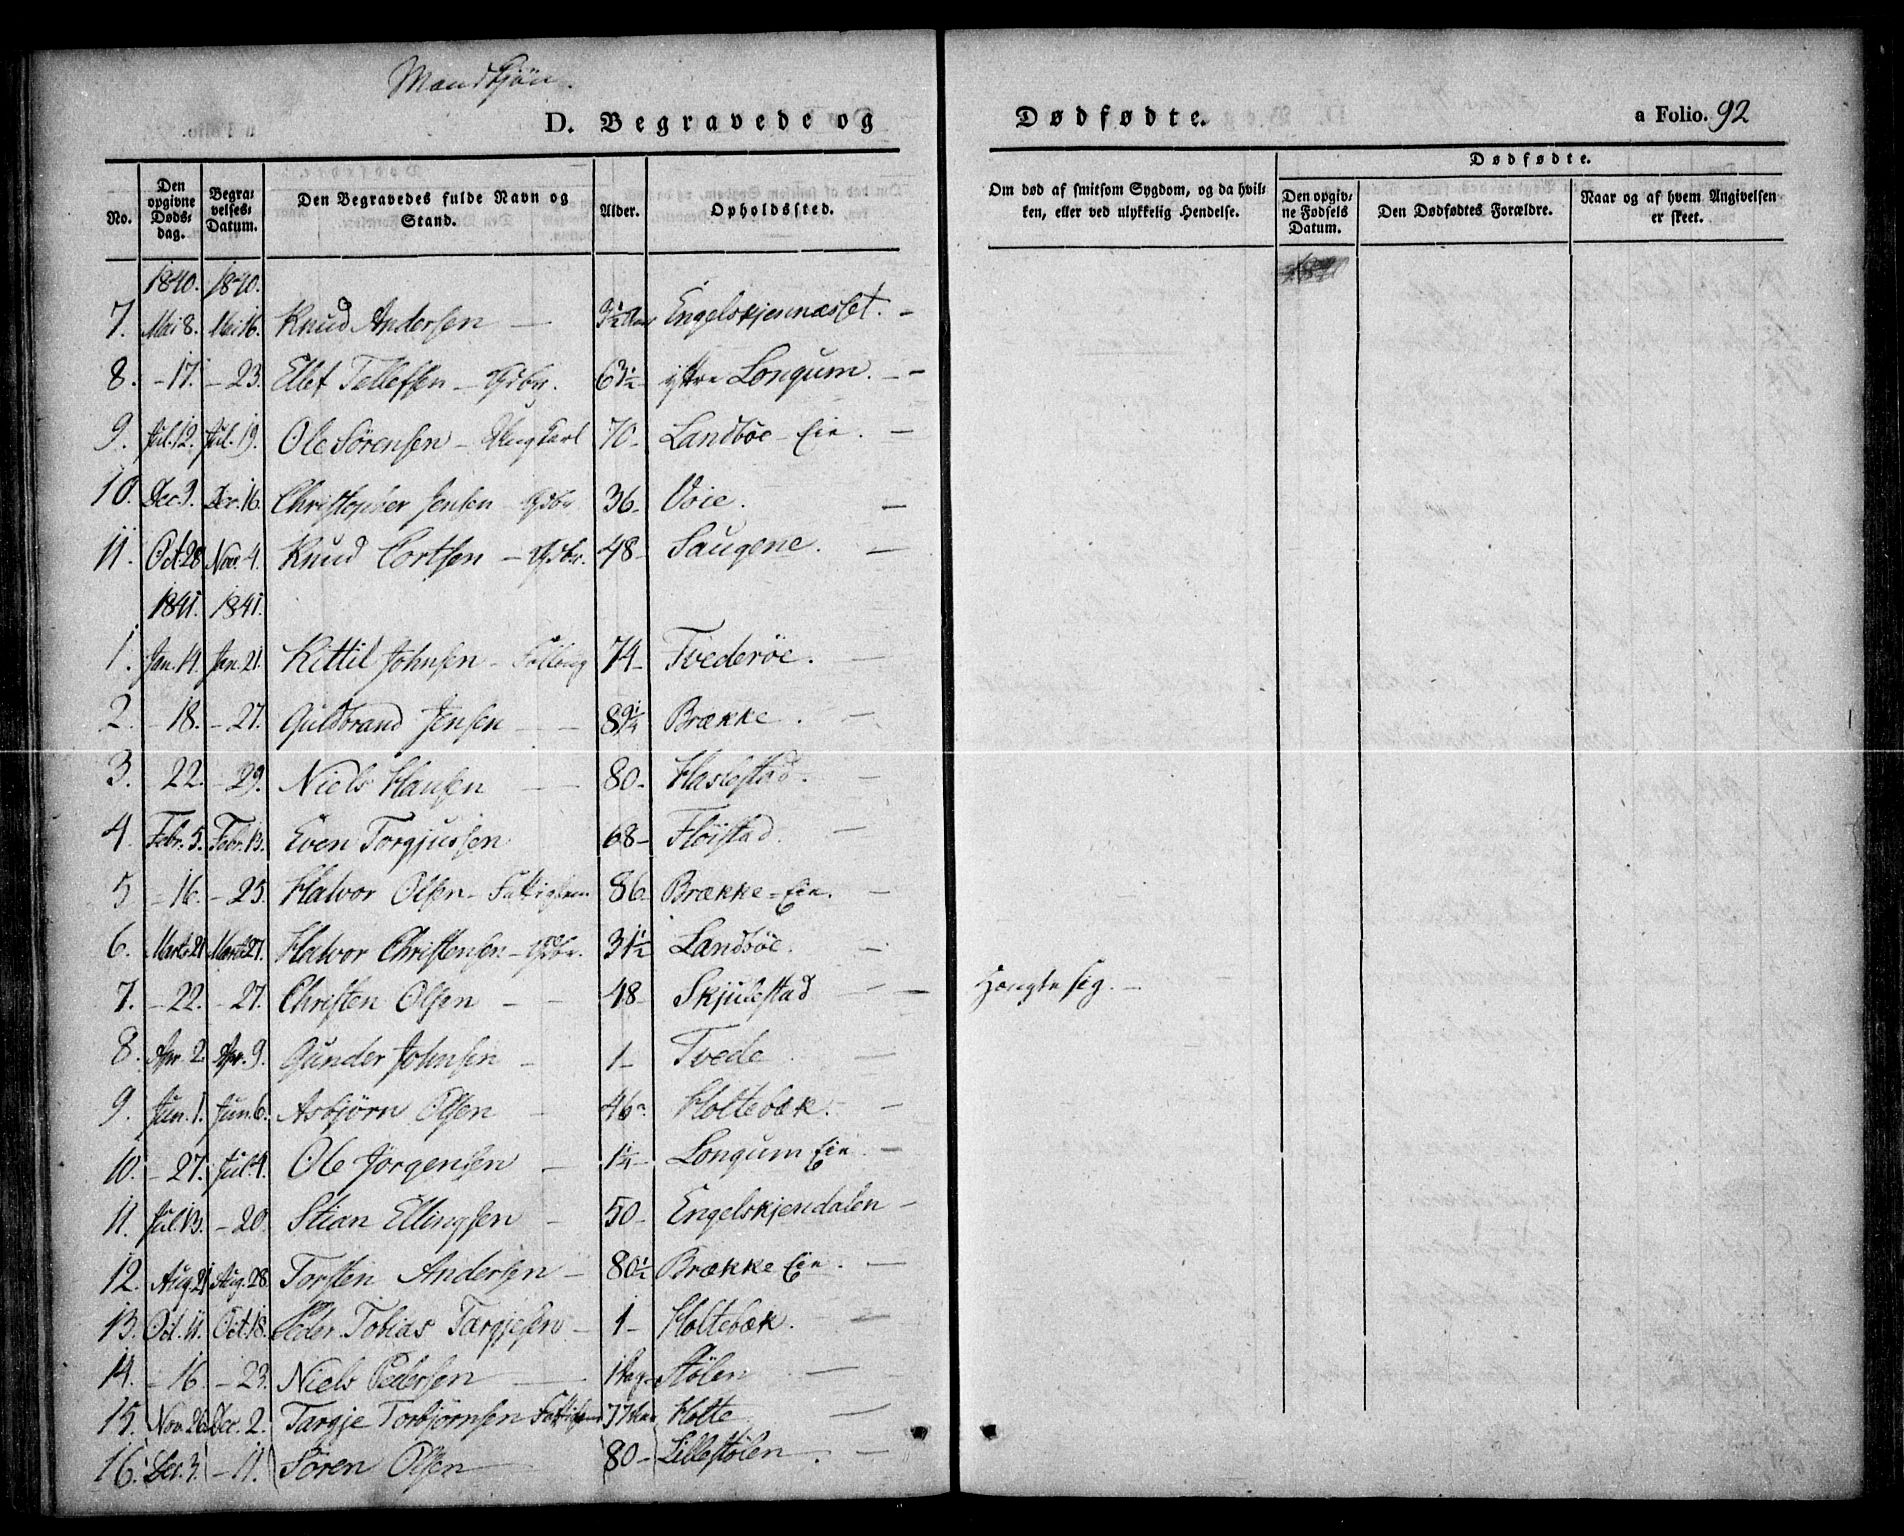 Mandkjøn.
D. Begravede og Dødfødte. a Folio. 92
No. Den opgivne Døds-dag. Begra-velses-Datum. Den Begravedes fulde Navn og Stand. Alder. Opholdssted. Om død af smitsom Sygdom, og da hvil-ken, eller ved ulykkelig Hendelse. Dødfødte. Den opgiv-ne Fødsels Datum. Den Dødfødtes Forældre. Naar og af hvem Angivelsen er skeet.
1840. 1840.
7. Mai 8. Mai 16. Knud Andersen — Engelskjernnæsset. -
8. - 17. - 23. Ellef Tellefsen - Gdbr. 63½ ystre Longum. - -
9. Jul. 12. Jul. 19. Ole Sørensen - 70- Landbøe - Eie. -
10. Dec 9. Dec. 16 Christopher Jensen - Gdbr 36- Voie. -
11. Oct. 28 Nov. 4. Knud Cortsen - Gdbr. 48- Saugene. -
1841. 1841.
1. Jan. 14. Jan. 21. Kittil Johnsen - 74- Tvederøe. -
2. - 18. - 27. Guldbrand Jensen - - 89¼ Brække. -
3. 22. - 29. Niels Hansen - - 80- Haslestad. -
4. Febr. 5. Febr. 13. Even Torgjussen 68- Fløistad. -
5 - 16. - 25. Halvor Olsen - Fattiglem 86- Brække - Eie. -
6. Marts 21 Marts 27. Halvor Christensen - Gdbr. 31½ Landbøe. -
7. - 22. - 27. Christen Olsen - - 48 Skjulestad - - Hængte sig. -
8. Apr. 2. Apr. 9. Gunder Johnsen - 1- Tvede. -
9. Jun. 1. Jun. 6. Asbjørn Olsen - 46- Holtebæk. - -
10. - 27. Jul. 4. Ole Jørgensen - 1¼- Longum Eie. -
11. Jul 13. - 20. Stian Ellingsen - 50- Engelskjendalen -
12. Aug. 21 Aug. 28. Torsten Andersen - 80½ Brække Eie. -
13. Oct. 11. Oct. 18. Peder Tobias Targjesen - 1- Holtebæk. -
14. - 16 - 23. Niels Pedersen - 1 Dag - Stølen -
15. Nov. 26 Dec. 2. Targje Torbjørnsen 77 Holte -
16. Dec. 3. - 11. Søren Olsen - 80- Lillestølen -